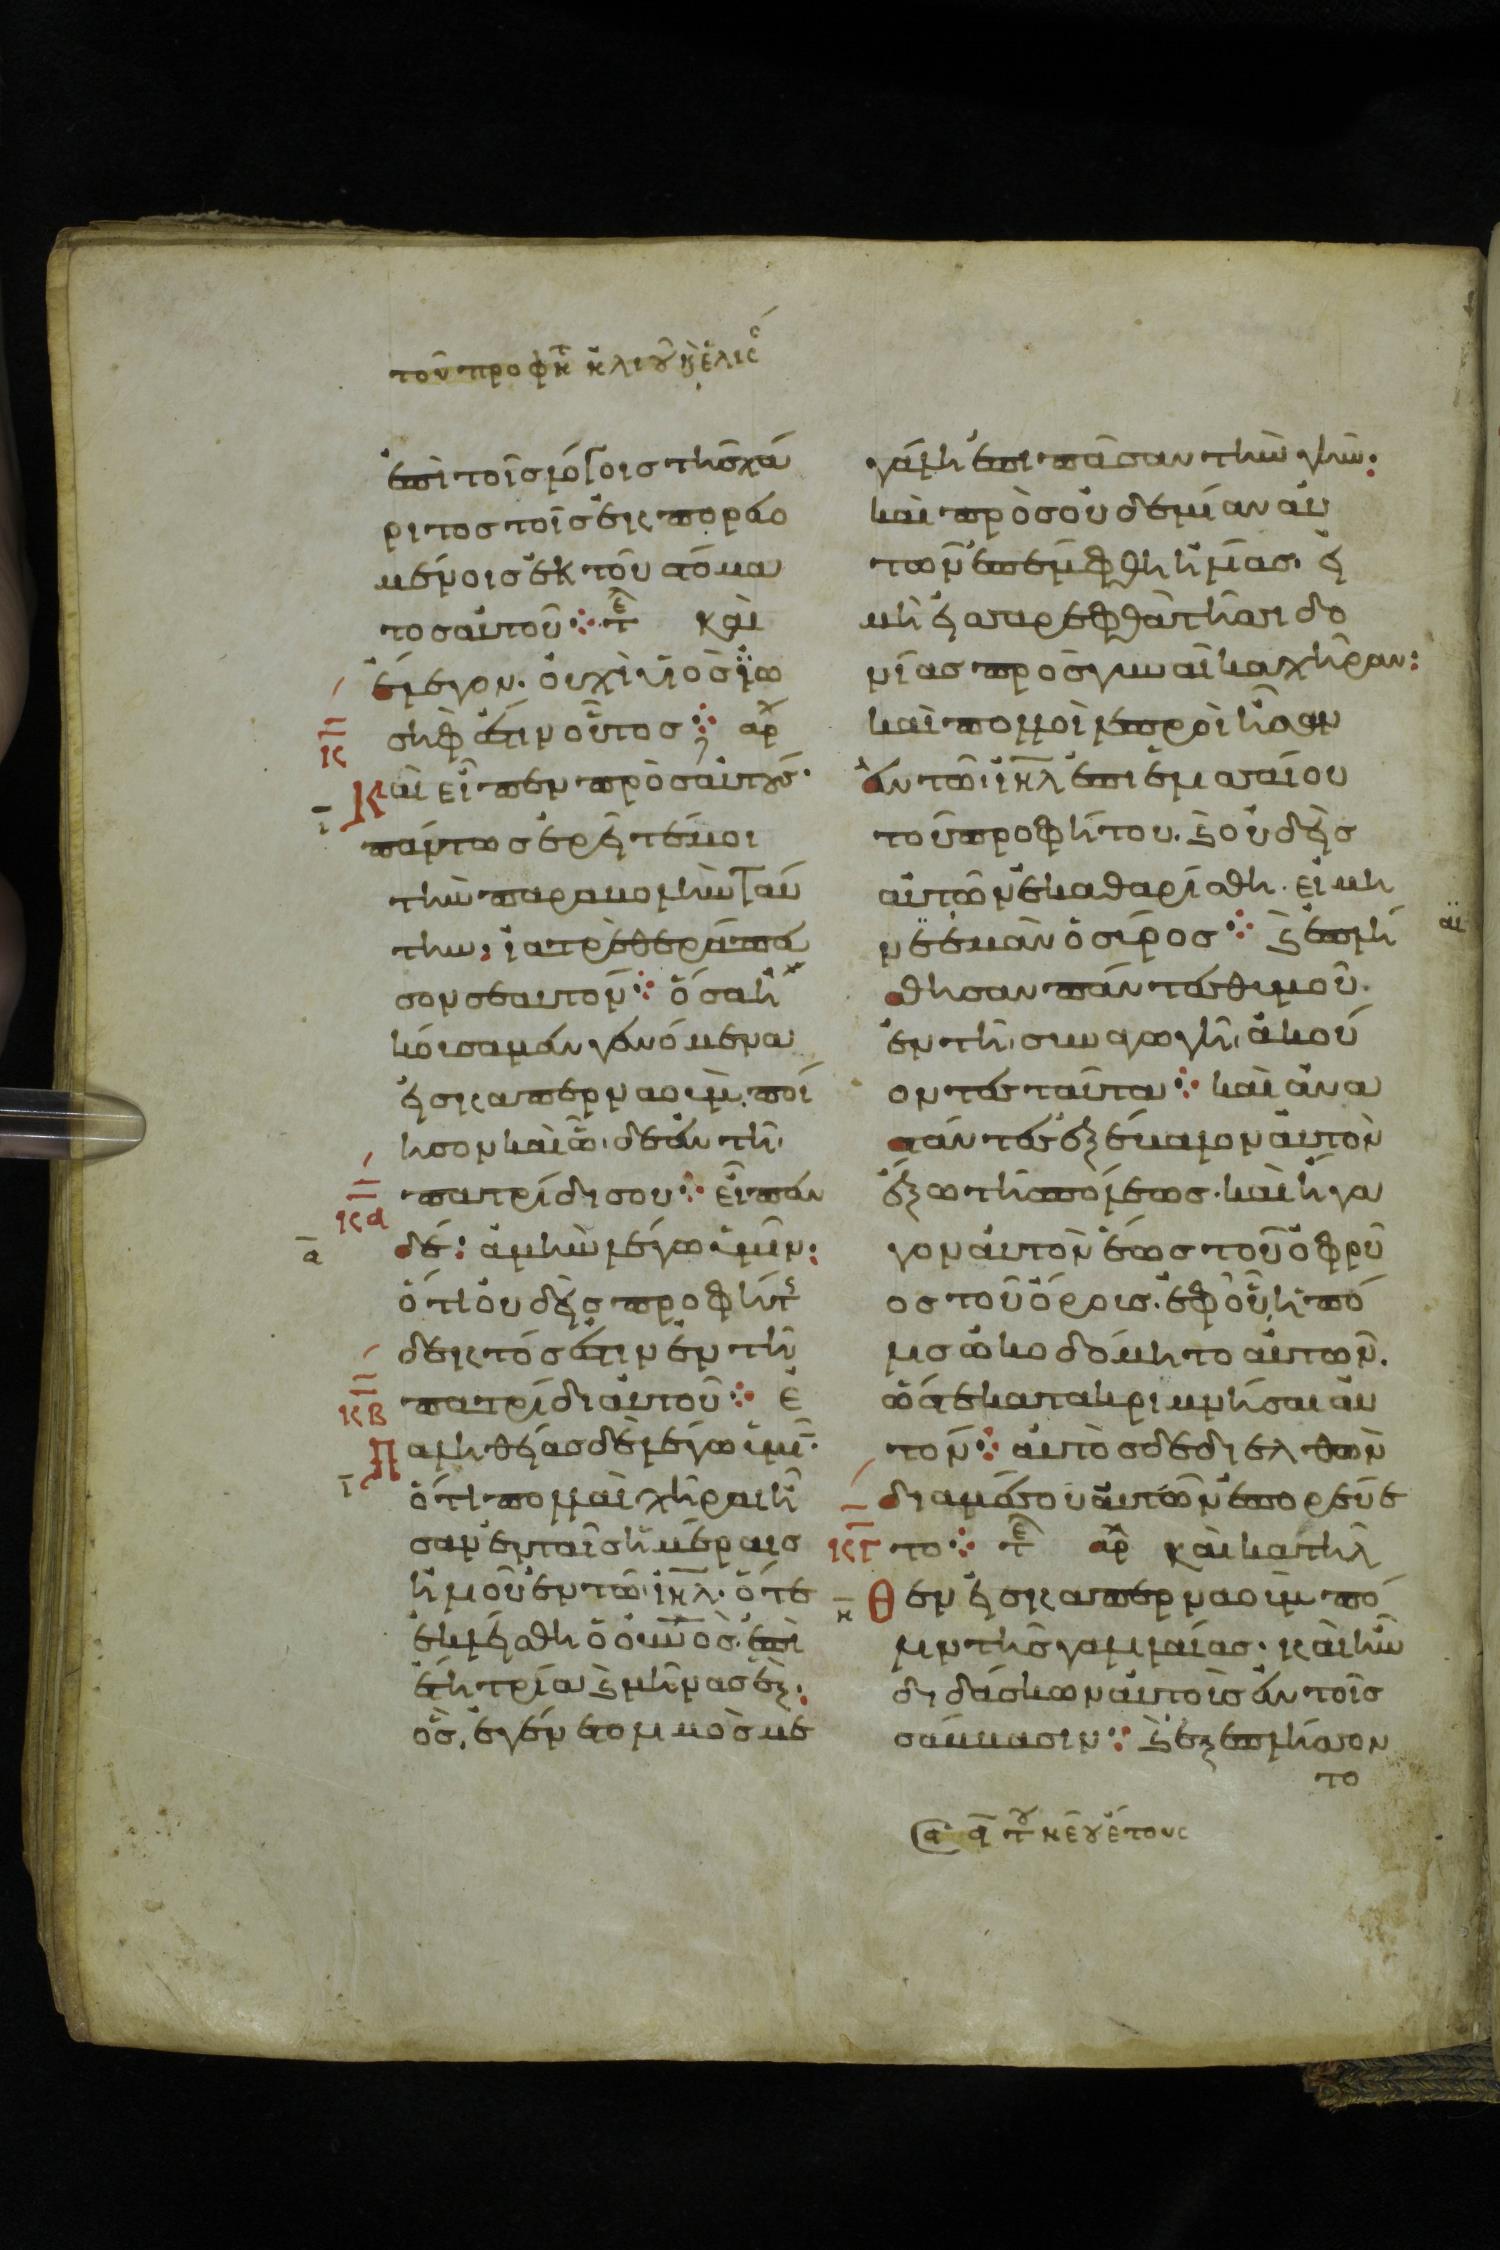 τοῦ προφητ ἠλιοῦ κ ἐλισ
ἐπὶ τοῖς λόγοις τῆς χά
ριτος τοῖς ἐκπορευο
μένοις ἐκ τοῦ στόμα
τος αὐτοῦ ⁘ τε καὶ
ἔλεγον· οὐχὶ υἱὸς ἰω
σήφ ἐστιν οὗτος ⁘ αρχ
κ
Καὶ εἶπεν πρὸς αὐτούς·
ι
πάντως ἐρεῖτέ μοι
τὴν παραβολὴν ταύ
την· ἰατρὲ θεράπευ
σον σεαυτόν ⁘ ὅσα ἠ
κούσαμεν γενόμενα
εἰς καπερναούμ, ποί
ησον καὶ ὧδε ἐν τῆ
πατρίδι σου ⁘ εἶπεν
κα
δέ· ἀμὴν λέγω ὑμῖν·
α
ὅτι οὐδεὶς προφήτς
δεκτός ἐστιν ἐν τῆ
πατρίδι αὐτοῦ ⁘ ἐ
κβ
Παληθείας δὲ λέγω ὑμῖ·
ι
ὅτι πολλαὶ χῆραι ἦ
σαν ἐν ταῖς ἡμέραις
ἠλιοῦ ἐν τῶ ἰηλ· ὅτε
ἐκλείσθη ὁ οὐνος ἐπὶ
ἔτη τρία κ μῆνας ἕξ·
ὡς ἐγένετο λιμὸς με
γάλη ἐπὶ πᾶσαν τὴν γῆν·
καὶ πρὸς οὐδεμίαν αὐ
τῶν ἐπέμφθη ἠλίας· εἰ
μὴ εἰς σαρεφθὰ τῆς σιδο
νίας πρὸς γυναῖκα χήραν:
καὶ πολλοὶ λεπροὶ ἦσαν
ἐν τῶ ἰηλ ἐπὶ ἐλισσαίου
τοῦ προφήτου. κ οὐδεὶς
αὐτῶν ἐκαθαρίσθη· εἰ μὴ
νεεμὰν ὁ σύρος ⁘ κ ἐπλή
σθησαν πάντες θυμοῦ·
ἐν τῆ συναγωγῆ, ἀκού
οντες ταῦτα ⁘ καὶ ἀνα
στάντες ἐξέβαλον αὐτὸν
ἔξω τῆς πόλεως· καὶ ἤγα
γον αὐτὸν ἕως τοῦ ὀφρύ
ος τοῦ ὄρους· ἐφ οὗ ἡ πό
λις ὠκοδόμητο αὐτῶν·
ὥστε κατακρημνῆσαι αὐ
τόν ⁘ αὐτὸς δὲ διελθὼν
διαμέσου αὐτῶν ἐπορεύε
κγ
το ⁘ τε αρχ καὶ κατῆλ
η
θεν εἰς καπερναοὺμ πό
λιν τῆς γαλιλαίας· καὶ ἦν
διδάσκων αὐτοὺς ἐν τοῖς
σάββασιν ⁘ κ ἐξεπλήσσον
το